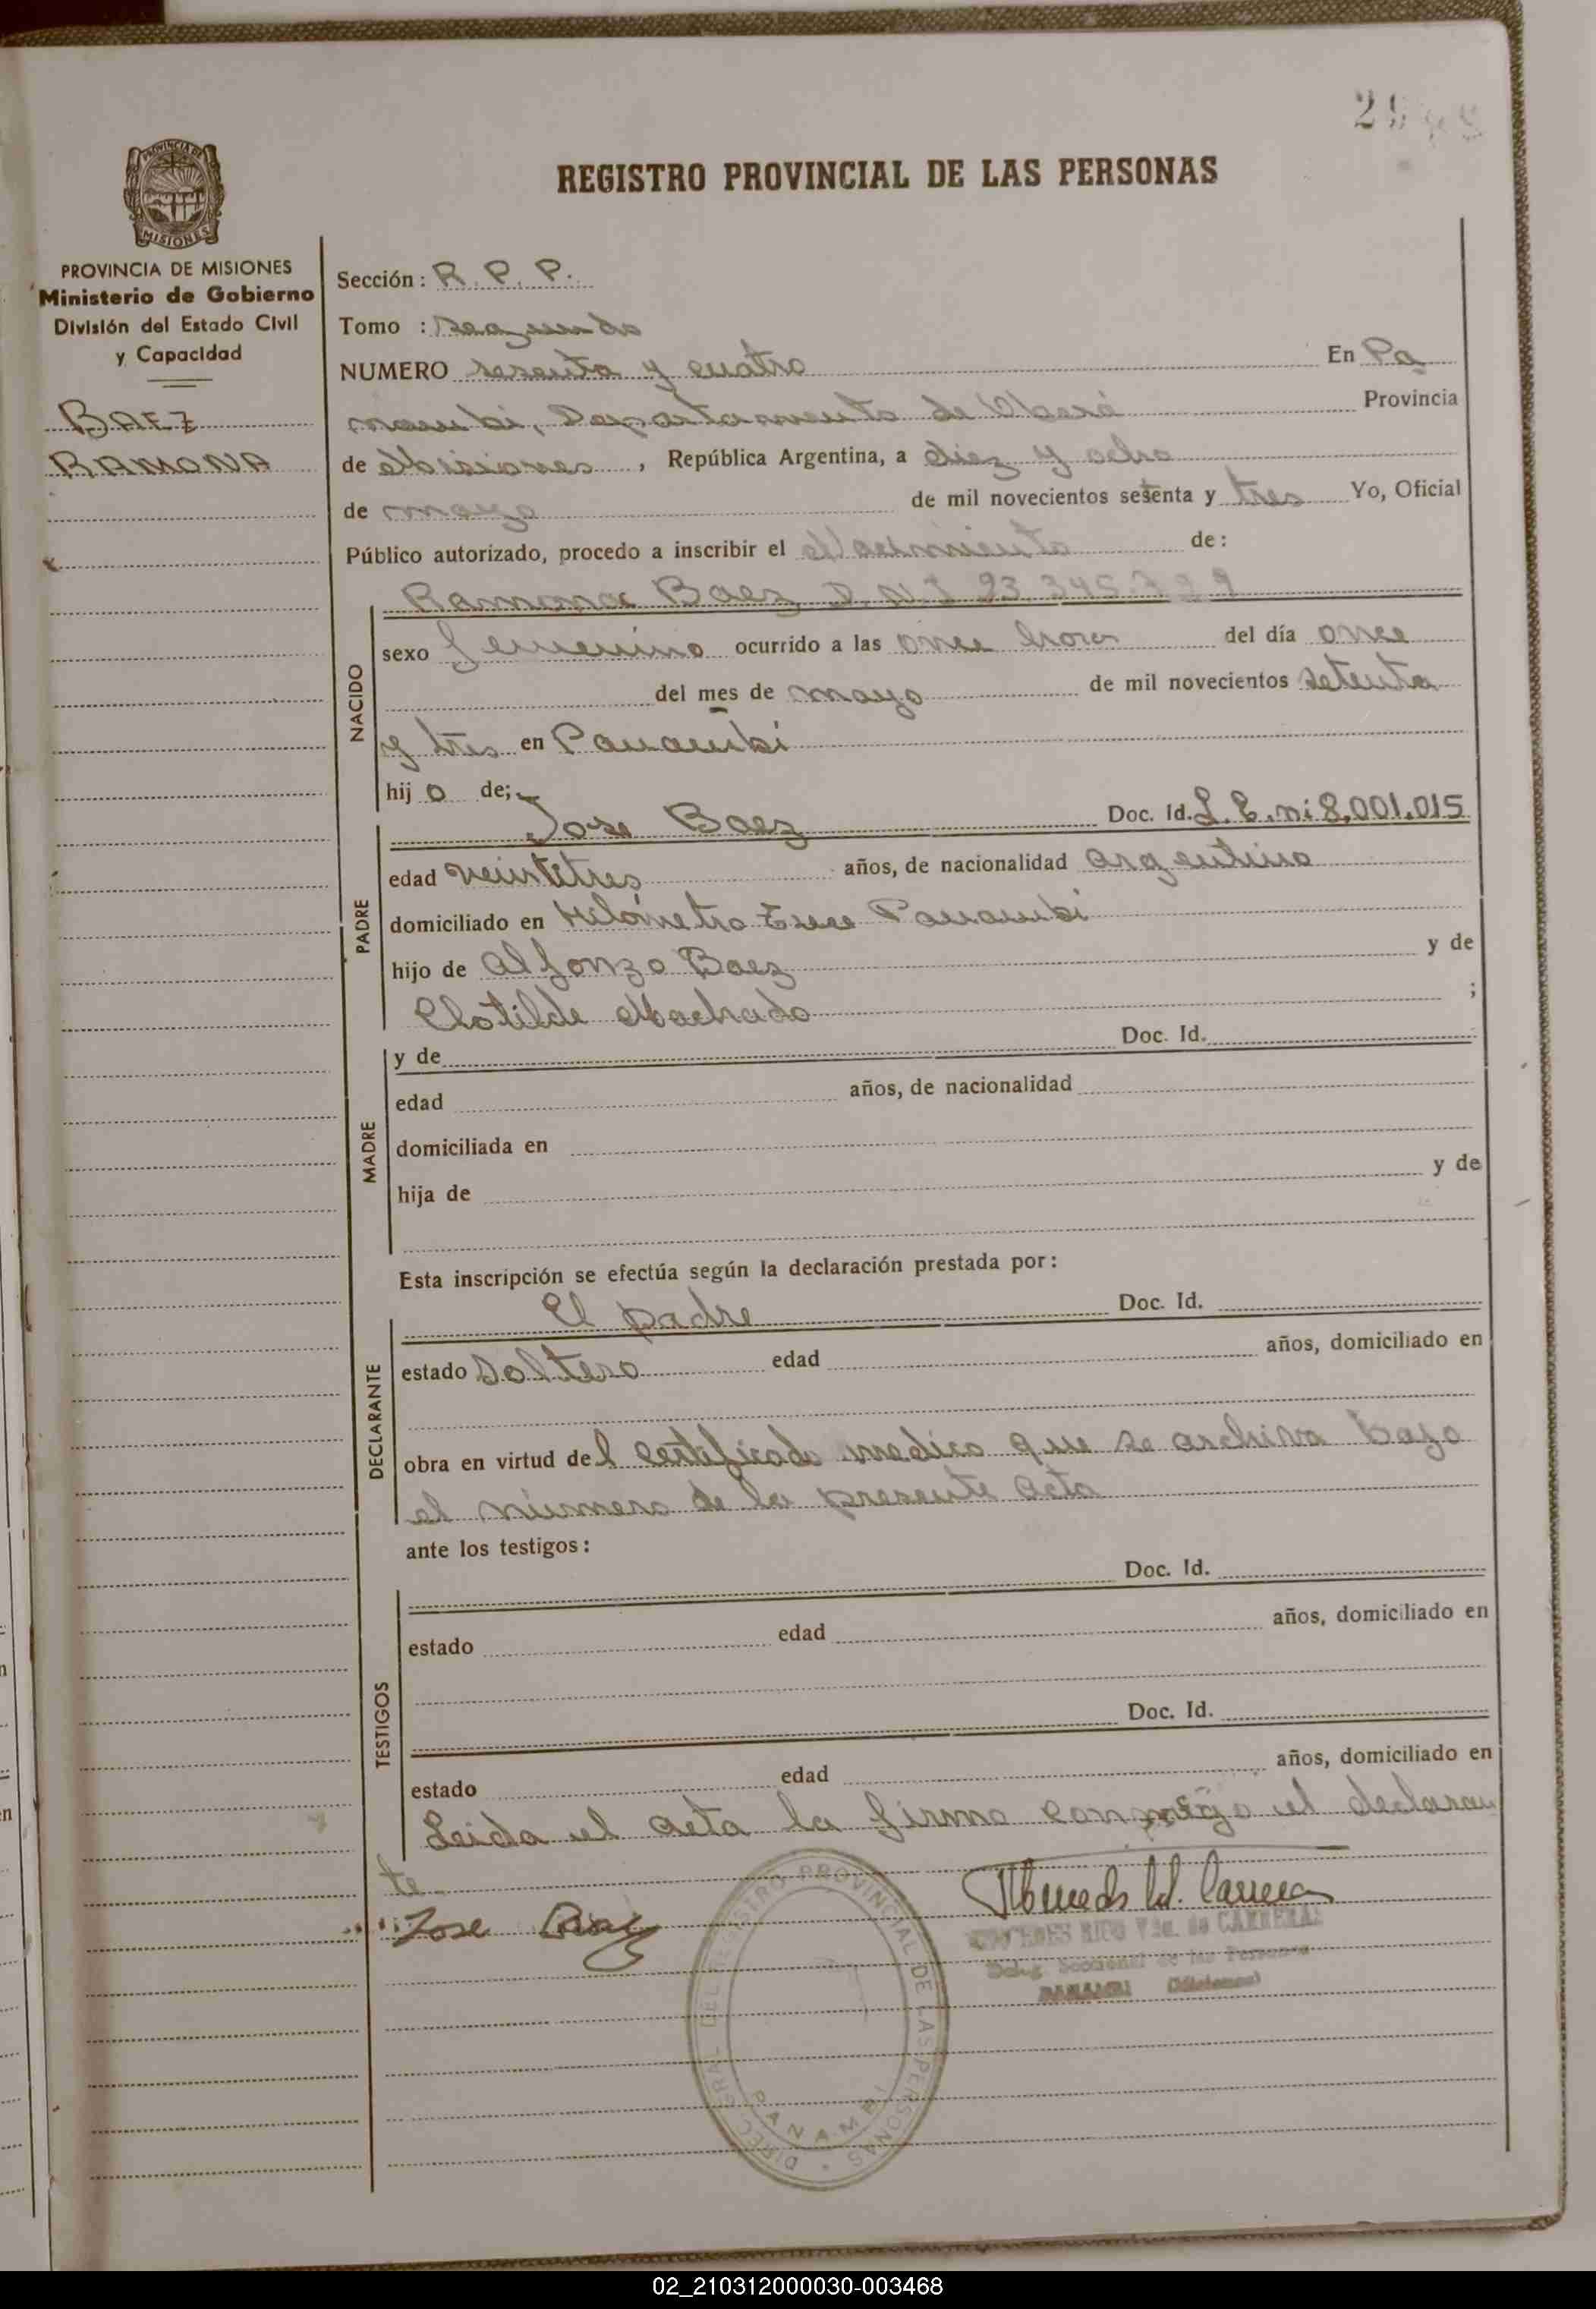 REGISTRO PROVINCIAL DE LAS PERSONAS
PROVINCIA DE
MISIONES
PROVINCIA DE MISIONES
Ministerio de Gobierno
División del Estado Civil
y Capacidad
BAEZ
RAMONA
Sección: R. P. P.
Tomo : Segundo
NUMERO sesenta y cuatro En Pa
nambi, Departamento de Oberá Provincia
de Misiones, República Argentina, a diez y ocho
de mayo de mil novecientos setenta y tres Yo, Oficial
Público autorizado, procedo a inscribir el Nacimiento de:
Ramona Baez D.N.I 23.345.
NACIDO
sexo femenino ocurrido a las once horas del día once
del mes de mayo de mil novecientos setenta
y tres en Panambi
hijo de;
Jose Baez Doc. Id. L. E. nº 8,001.015
PADRE
edad veintitres años, de nacionalidad argentino
domiciliado en Kilómetro Panambi
hijo de Alfonzo Baez y de
Clotilde Machado ;
MADRE
y de Doc. Id.
edad años, de nacionalidad
domiciliada en
hija de y de
Esta inscripción se efectúa según la declaración prestada por:
El padre Doc. Id.
DECLARANTE
estado Soltero edad años, domiciliado en
obra en virtud del certificado medico que se archiva bajo
el número de la presente acta
ante los testigos:
Doc. Id.
TESTIGOS
estado edad años, domiciliado en
Doc. Id.
estado edad años, domiciliado en
Leida el acta la firma conmigo el declaran
te
Jose Baez
Vda. de CARRERAS
Deleg. Seccional de las Personas
PANAMBI (Misiones)
DIREC. GRAL. DEL REGISTRO PROVINCIAL DE LAS PERSONAS
PANAMBI
02_210312000030-003468